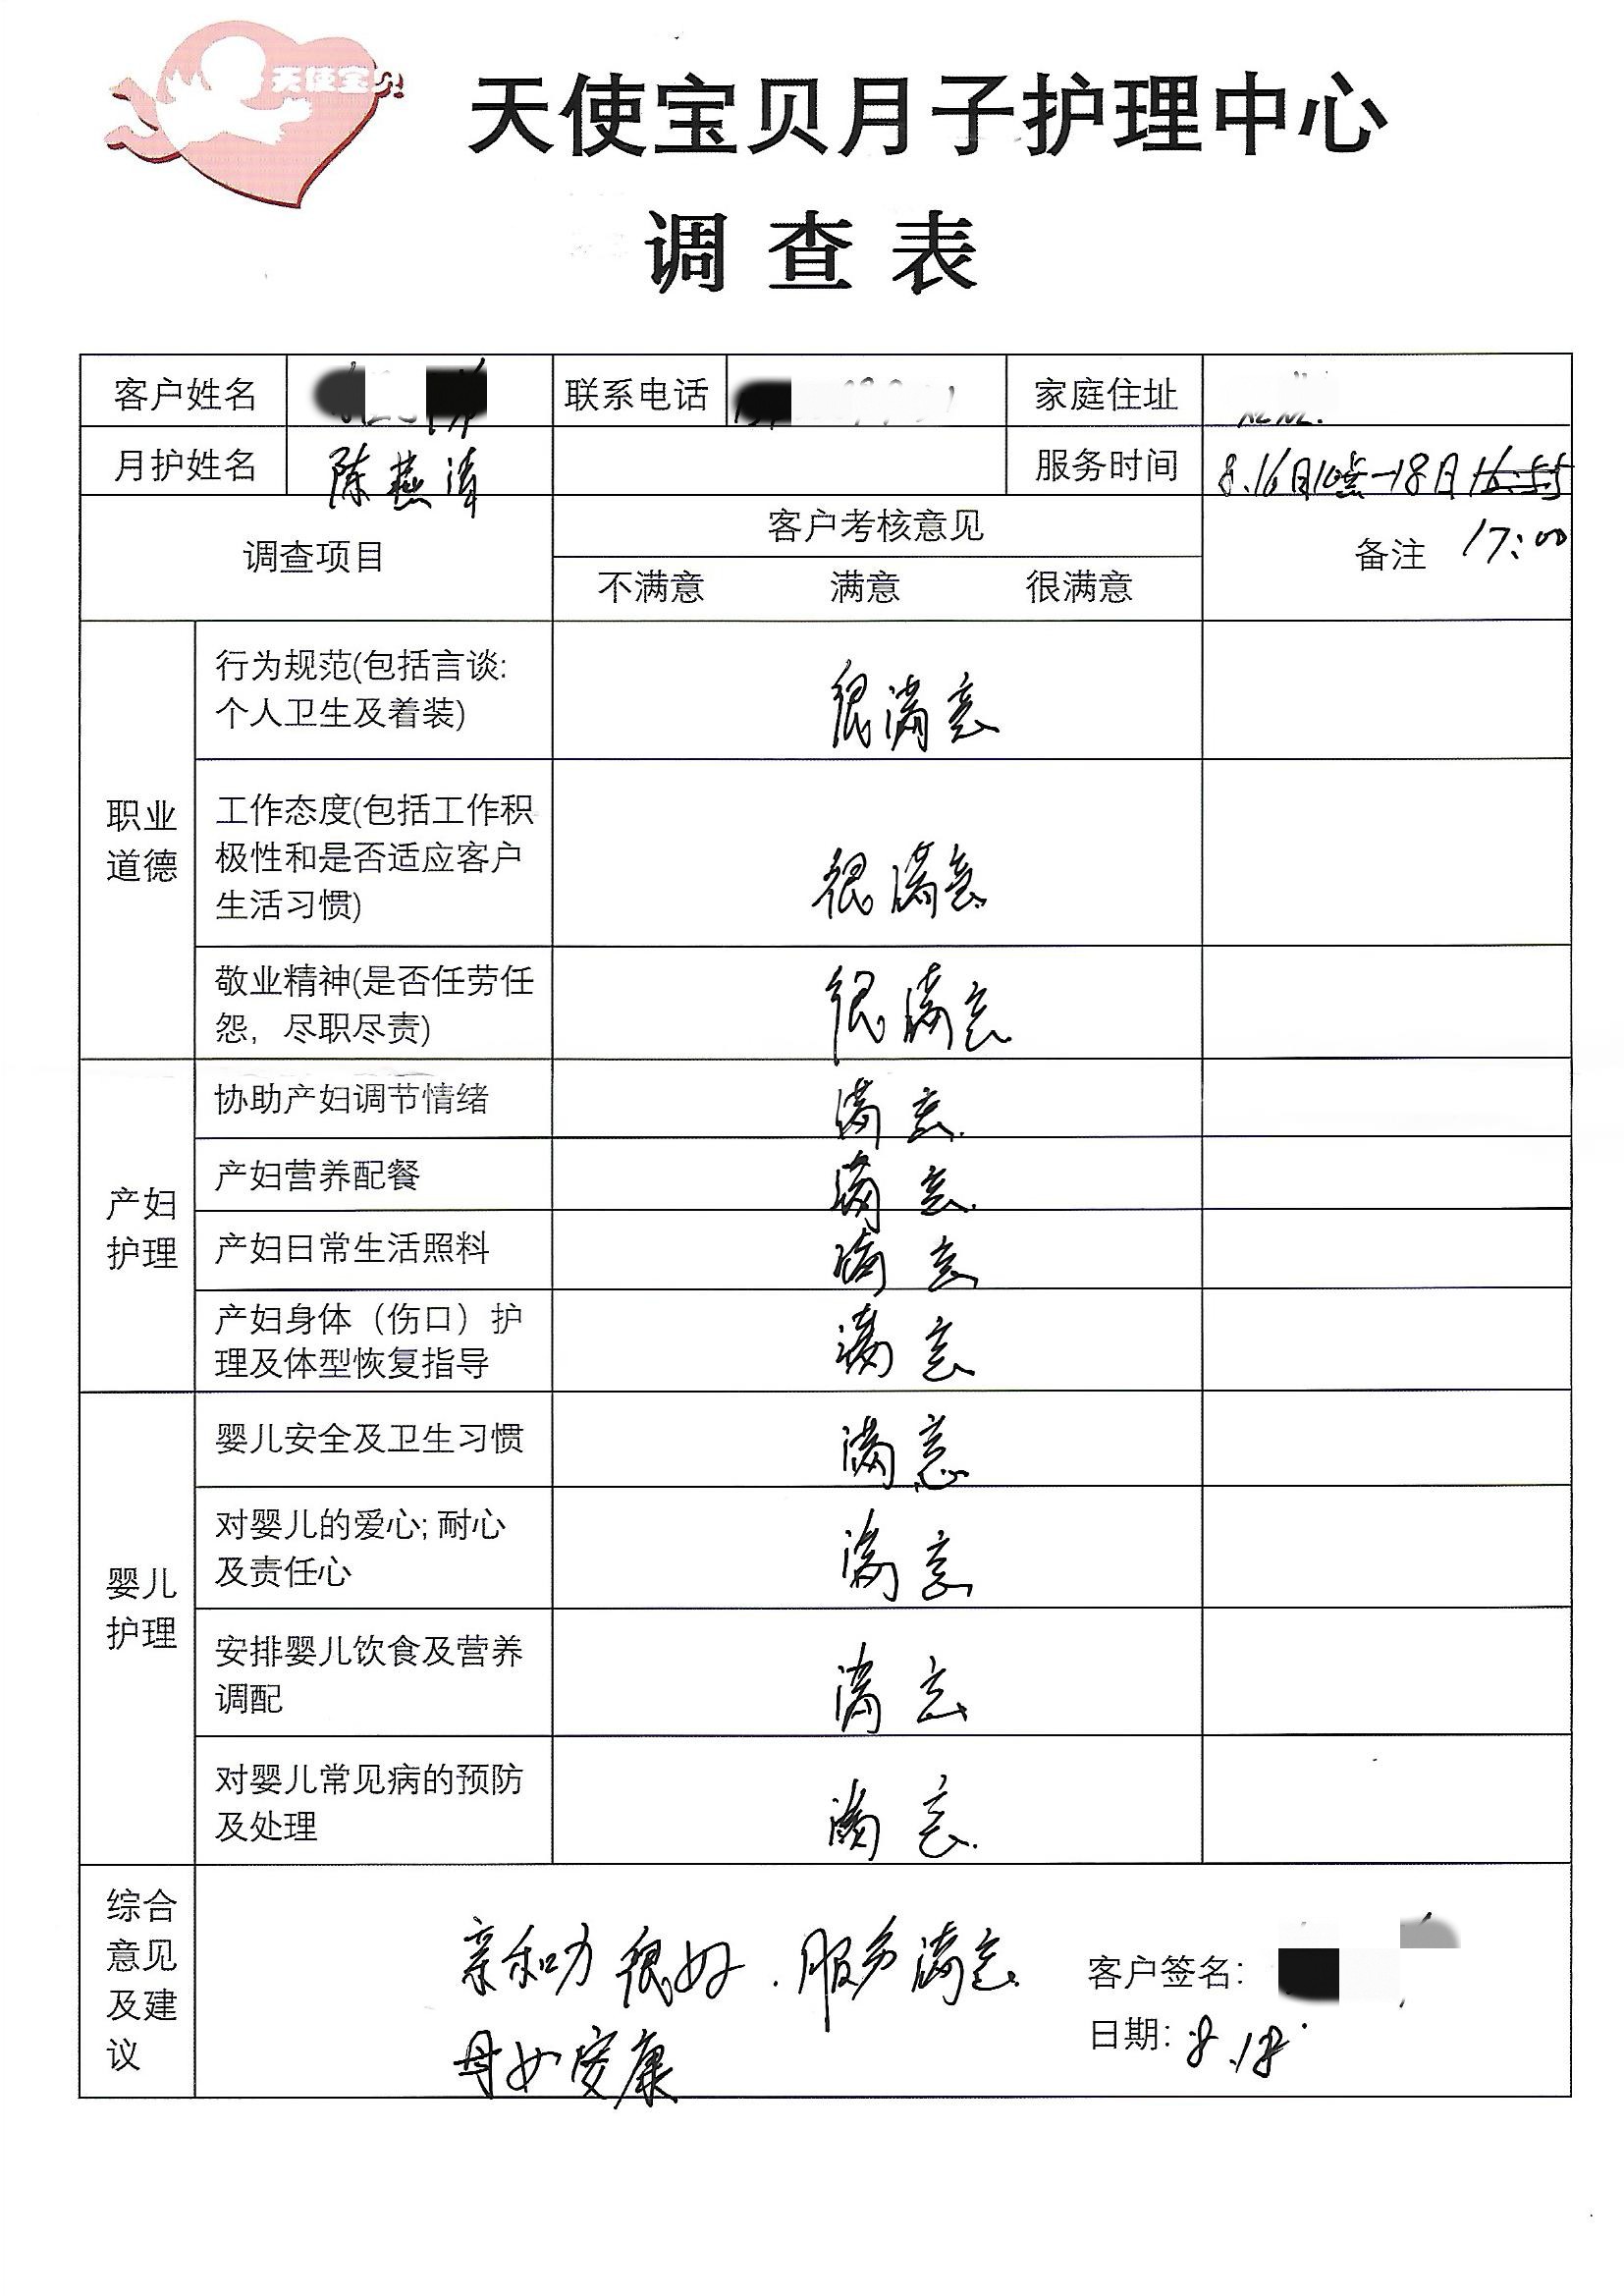 天使宝贝
天使宝贝月子护理中心
调查表
客户姓名 联系电话 家庭住址
月护姓名 陈燕清 服务时间 8.16日10点-18日16:55
17:00
调查项目 客户考核意见 备注
不满意 满意 很满意
职业
道德
行为规范(包括言谈:
个人卫生及着装)
很满意
工作态度(包括工作积
极性和是否适应客户
生活习惯)
很满意
敬业精神(是否任劳任
怨，尽职尽责)
很满意
产妇
护理
协助产妇调节情绪 满意.
产妇营养配餐 满意.
产妇日常生活照料 满意
产妇身体（伤口）护
理及体型恢复指导
满意
婴儿
护理
婴儿安全及卫生习惯 满意
对婴儿的爱心; 耐心
及责任心
满意
安排婴儿饮食及营养
调配
满意
对婴儿常见病的预防
及处理
满意.
综合
意见
及建
议
亲和力很好.服务满意
母如安康
客户签名:
日期: 8.18